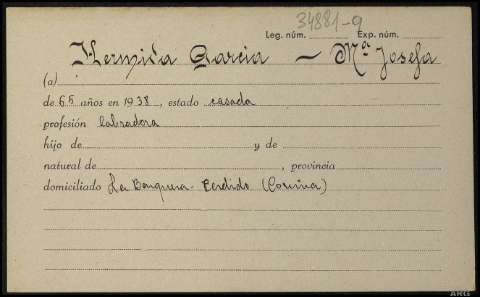 34881-9
Leg. núm. Exp. núm.
Hermida Garcia — Mª Josefa
(a)
de 65 años en 1938, estado casada
profesión labradora
hijo de y de
natural de , provincia
domiciliado La Barquera - Cerdido (Coruña)
ARG